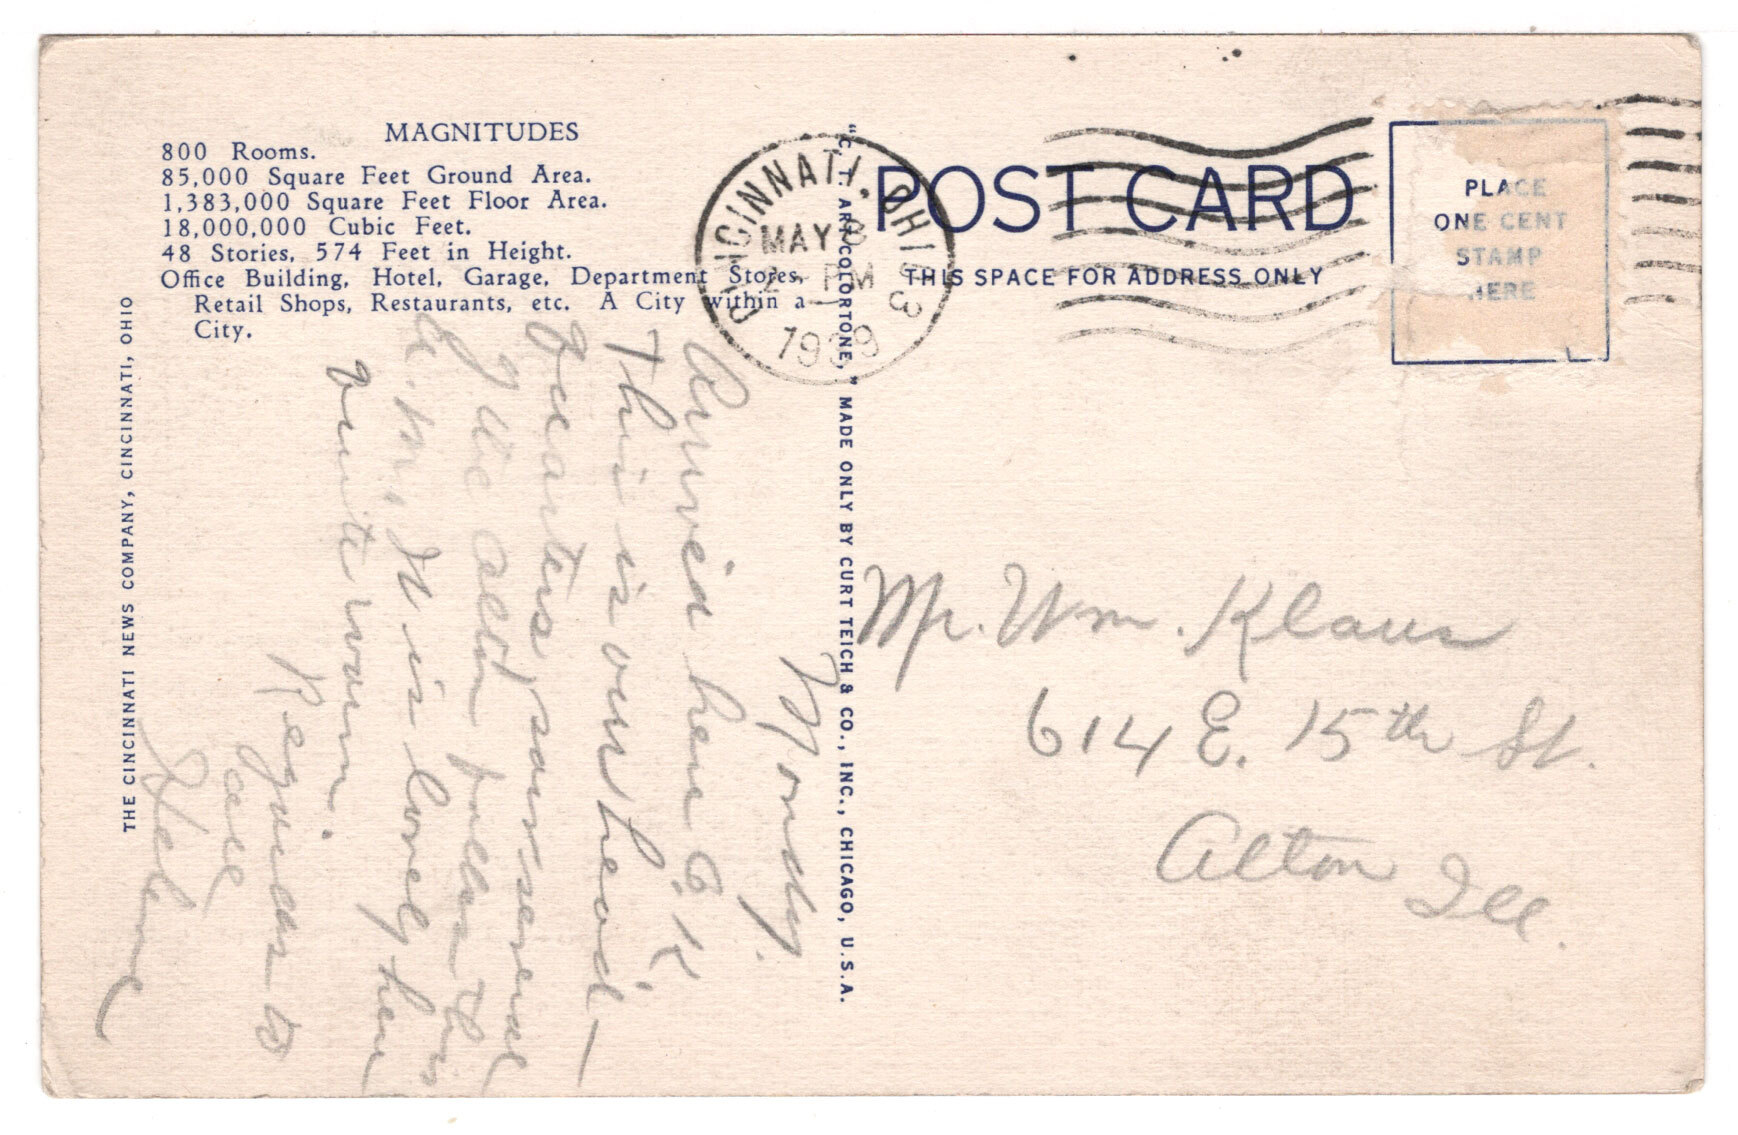 MAGNITUDES
800 Rooms.
85,000 Square Feet Ground Area.
1,383,000 Square Feet Floor Area.
18,000,000 Cubic Feet.
48 Stories, 574 Feet in Height.
Office Building, Hotel, Garage, Department Stores,
Retail Shops, Restaurants, etc. A City within a
City.
THE CINCINNATI NEWS COMPANY, CINCINNATI, OHIO
Monday.
Arrived here O.K
This is our head-
quarters, saw several
of the Alton folks this
a.m, It is lovely here
quite warm.
Regards to
all
Helene
"C. T. ART-COLORTONE," MADE ONLY BY CURT TEICH & CO., INC., CHICAGO, U.S.A.
CINCINNATI, OHIO
MAY 8
2 PM
1939
3
POST CARD
THIS SPACE FOR ADDRESS ONLY
PLACE
ONE CENT
STAMP
HERE
Mr. Wm. Klaus
614 E. 15th St.
Alton Ill.